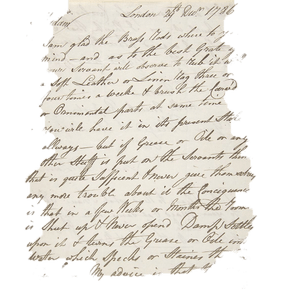 London 24th Decr. 178
am glad the Brass Stads where to y
mind – and as to the best Grate y
Servant will choose to rub it a
soft Leather or Linnen Rag three or
four times a week & brush the Carved
or Ornimental parts at same time
you will have it in its present Sta
allways – but if Grease or Oile or any
other Stuff is put on the Servants
that is quite Sufficent & never gives themselves
any more trouble about it the Consiquence
is that in a few Weeks or Months the Room
is Shut up & Never Used Damp Settles
upon it & turns the Grease or Oile into
Water which Specks or Staines th
My advice is that